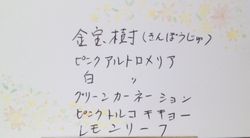 金宝樹(きんぽうじゅ)
ピンクアルトロメリア
白 〃
グリーンカーネーション
ピンクトルコキキョー
レモンリーフ